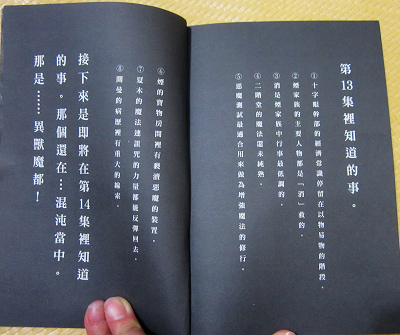 第13集裡知道的事。
①十字眼幹部的經濟常識停留在以物易物的階段。
②煙家族的主要人物都是「消」救的。
③消是煙家族中行事最低調的。
④二階堂的魔法還未純熟。
⑤惡魔測試最適合用來做為增強魔法的修行。
⑥煙的寶物房間裡有褻瀆惡魔的裝置。
⑦夏木的魔法連詛咒的力量都能反彈回去。
⑧開曼的病歷裡有重大的線索。
接下來是即將在第14集裡知道
的事。那個還在…混沌當中。
那是……異獸魔都！